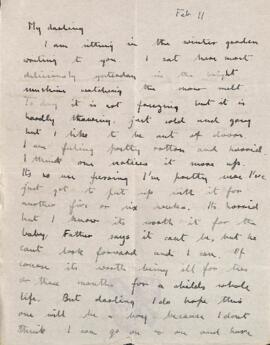 Feb 11
My darling
I am sitting in the winter garden
writing to you. I sat here most
deliciously yesterday in the bright
sunshine watching the snow melt
To day it is not freezing but it is
hardly thawing. just cold and grey
but I like to be out of doors
I am feeling pretty rotten and horrid
I think one notices it more up.
Its no use fussing I'm pretty sure I've
just got to put up with it for
another five or six weeks. Its horrid
but I know its worth it for the
baby. Father says it cant be, but he
cant look forward and I can. Of
course its worth being ill for two
or three months for a childs whole
life. But darling I do hope this
one will be a boy because I dont
think I can go on and have